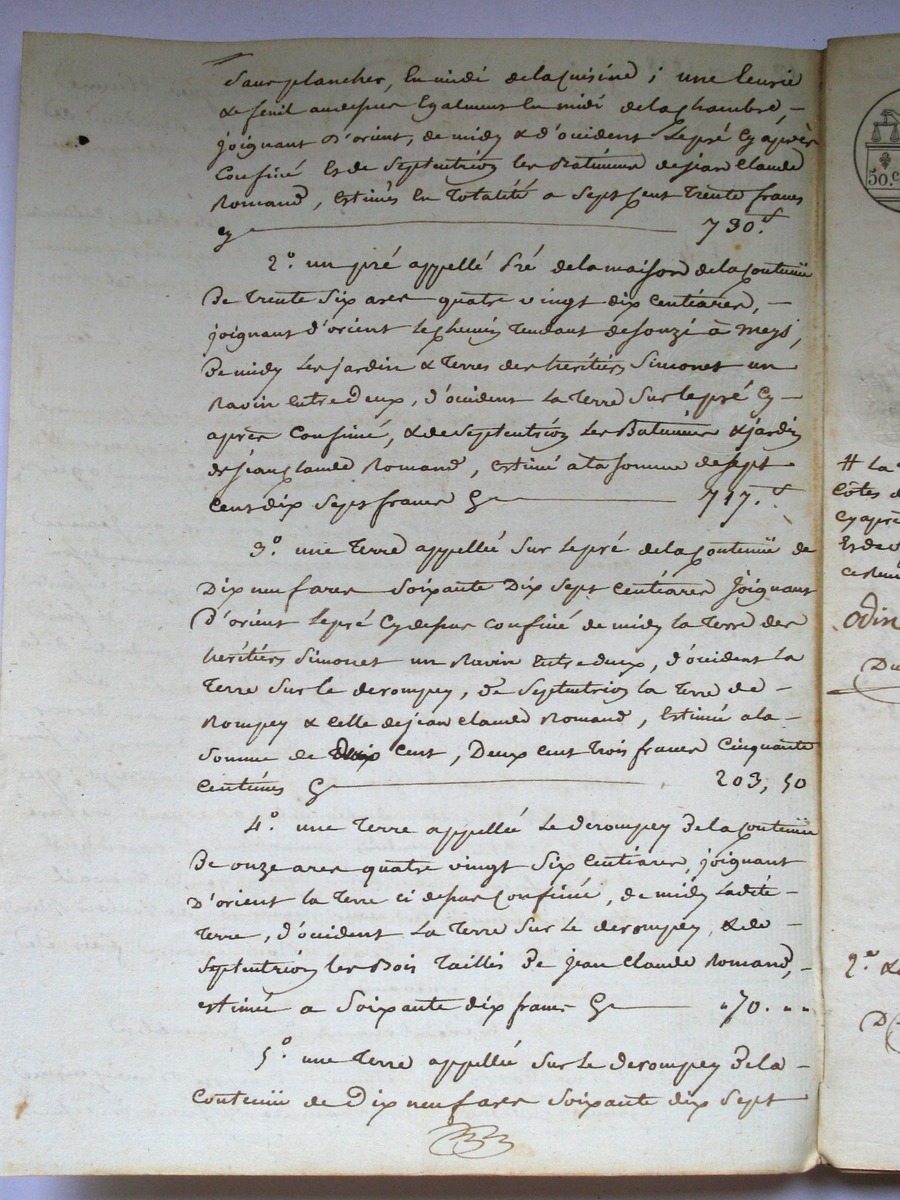 Sans plancher, en midi de la cuisine ; une
& fenil au dessus egalement en midi de la chambre, –
joignant d'orient, de midy & d'occident le pré cy après
confiné et de septentrion les Batimens de jean Claude
Romand, estimés en totalité a sept cent trente francs
cy 730.f
2.° un pré appellé Pré de la maison de la contenüe
De trente six ares quatre vingt dix centiares, –
joignant d'orient le chemin tendant de souzi à meys,
De midy les jardin & terres des heritiers Simonet un
Ravin entre Deux, d'occident la terre Sur le pré cy –
après confiné, & de septentrion les Batimens & jardin
de jean Claude Romand, estimé a la somme de sept
cent dix sept francs Cy 717.f
3.° une terre appellée sur le pré de la contenüe de
Dix neuf ares soixante Dix sept centiares joignant
D'orient le pré cy dessus confiné de midy la terre des
heritiers Simonet un Ravin entre deux, d'occident la
terre sur le derompey, de septentrion la terre de –
Rompey & celle de jean claude Romand, estimée a la –
somme de cent, Deux cent trois francs cinquante
centimes Cy 203, 50
4.° une terre appellée le derompey De la contenüe
De onze ares quatre vingt six centiares, joignant
d'orient la terre ci dessus confiné, de midy ladite –
terre, d'occident la terre sur le derompey, & de –
septentrion les Bois taillis De jean Claude Romand, –
estimée a soixante dix francs Cy " 70. " "
5.° une terre appellée sur le derompey De la –
contenüe de Dix neuf ares soixante dix sept
50.c
# la
côtés d
cy après
Et de
odin
Du
2.e &
D